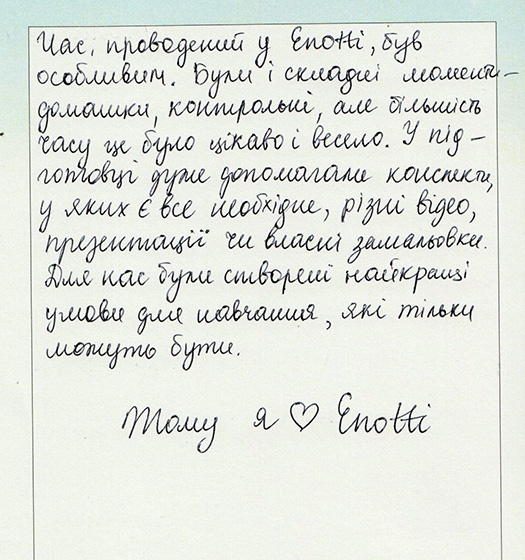 Час, проведений у Enotti, був
особливим. Були і складні моменти –
домашки, контрольні, але більшість
часу це було цікаво і весело. У під –
готовці дуже допомагали конспекти,
у яких є все необхідне, різні відео,
презентації чи власні замальовки.
Для нас були створені найкращі
умови для навчання, які тільки
можуть бути.
Тому я ♡ Enotti